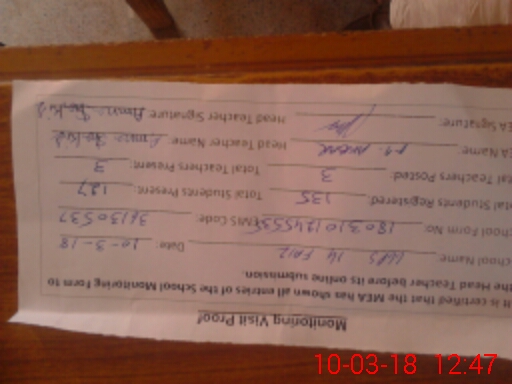 Monitoring Visit Proof
It is certified that the MEA has shown all entries of the School Monitoring Form to
the Head Teacher before its online submission.
School Name: 14 Date: 10-3-18
School Form No: EMIS Code: 36130537
Total Students Registered: 135 Total Students Present: 127
Total Teachers Posted: 3 Total Teachers Present: 3
MEA Name: Head Teacher Name:
MEA Signature: Head Teacher Signature:
10-03-18 12:47